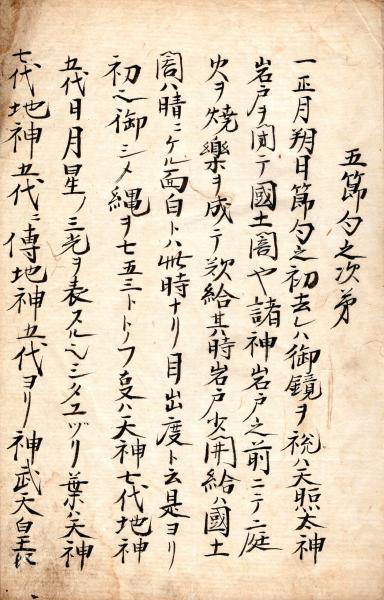 五節句之次第
一正月朔日節句之初去レハ御鏡ヲ祝ハ天照太神
岩戸ヲ閉テ國土闇や諸神岩戸之前ニテ庭
火ヲ焼樂ヲ成テ歌給其時岩戸少開給ハ國土
闇ハ晴ニケル面白トハ此時ナリ目出度ト云是ヨリ
初ル御シメ縄ヲ七五三トトノフ叓ハ天神七代地神
五代日月星ノ三光ヲ表スル也シタユヅリ葉ハ天神
七代地神五代ニ傳地神五代ヨリ神武天皇